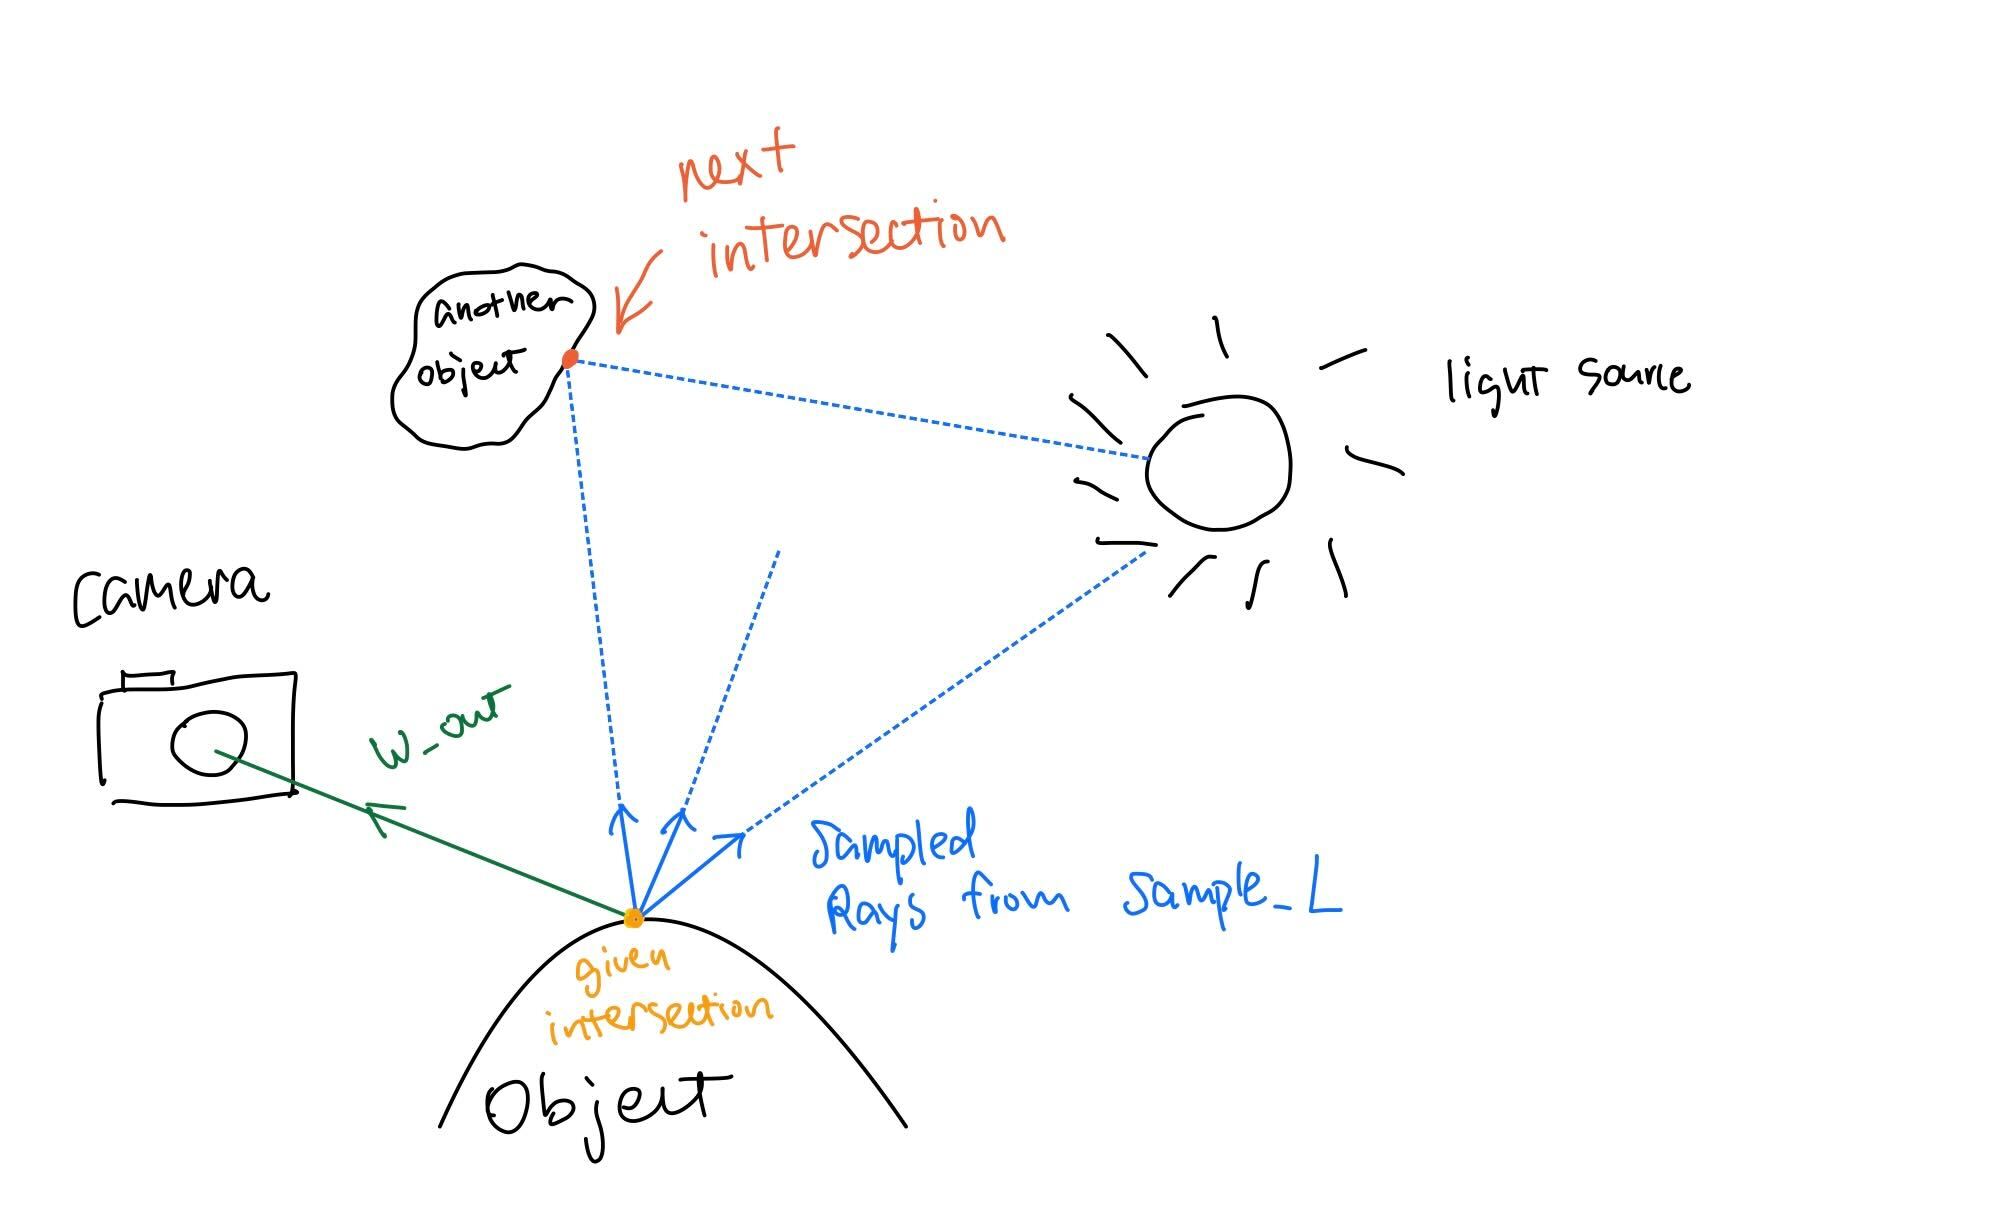 next
intersection
another
object
light source
Camera
W_out
Sampled
Rays from Sample_L
given
intersection
Object